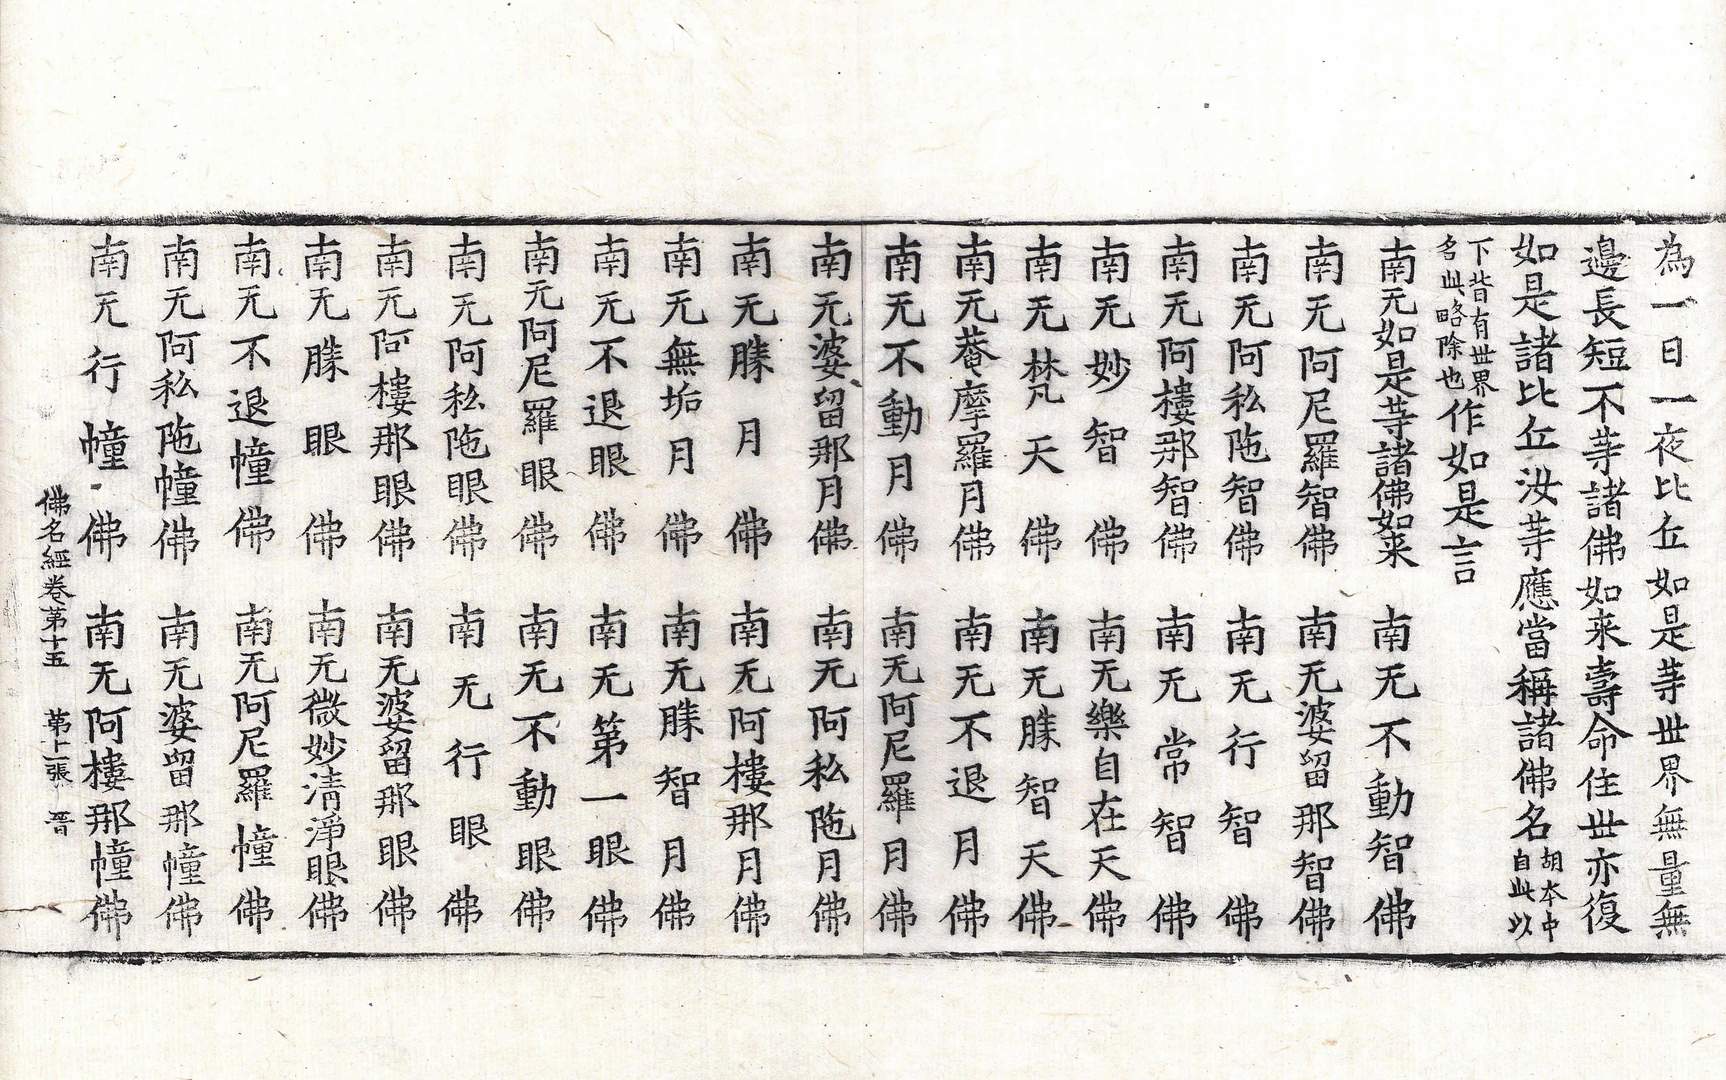 為一日一夜比丘如是等世界無量無
邊長短不等諸佛如来壽命住世亦復
如是諸比丘汝等應當稱諸佛名胡本中自此以
下皆有世界名此略除也作如是言
南无如是等諸佛如来 南无不動智佛
南无阿尼羅智佛 南无婆留那智佛
南无阿私陁智佛 南无行智佛
南无阿樓那智佛 南无常智佛
南无妙智佛 南无樂自在天佛
南无梵天佛 南无勝智天佛
南无菴摩羅月佛 南无不退月佛
南无不動月佛 南无阿尼羅月佛
南无婆留那月佛 南无阿私陁月佛
南无勝月佛 南无阿樓那月佛
南无無垢月佛 南无勝智月佛
南无不退眼佛 南无第一眼佛
南无阿尼羅眼佛 南无不動眼佛
南无阿私陁眼佛 南无行眼佛
南无阿樓那眼佛 南无婆留那眼佛
南无勝眼佛 南无微妙清淨眼佛
南无不退幢佛 南无阿尼羅幢佛
南无阿私陁幢佛 南无婆留那幢佛
南无行幢佛 南无阿樓那幢佛
佛名經卷第十五 第十一張 晋